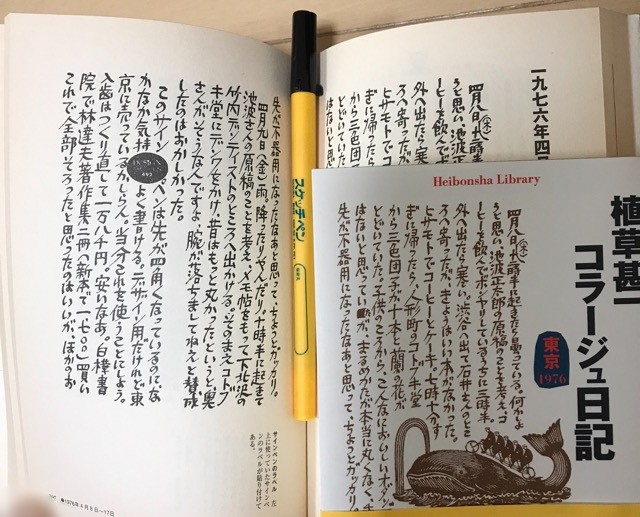 一九七六年四月
四月八日(木)七時半に起きたら曇っている。何かよ
うと思い、池波正太郎の原稿のことを考え、コ
ーヒーを飲んでボンヤリしているうちに三時半。
外へ出たら寒い。渋谷へ出て石井さんのとこ
ろへ寄ったが、きょうはいい本がなかった。
ヒサモトでコーヒーとケーキ。七時十分す
ぎに帰ったら、人形町のコトブキ堂
から三色団子が十本と蘭の花が
とどいていた。子供のころから、こんなにおいしいオダン
ゴはないと思っていたが、まるめかたが本当に丸くなく、チト
先が不器用になったなあと思って、ちょっとガッカリ。
四月九日(金)雨。降ったりやんだり。十時半に起きて
池波さんの原稿のことを考え、メモ帖をもって下北沢の
竹内デンティストのところへ出かける。そのまえコトブ
キ堂にデンワをかけ、昔はもっと丸かったというと、奥
さんが、そうなんですよ、腕が落ちましてねえと賛成
したのはおかしかった。
このサインペンは先が四角くなっているのにな
かなか気持よく書ける。デザイン用だけれど東
京に売っているかしらん。当分これを使うことにしよう。
入歯はつくり直して一万八千円。安いなあ。白樺書
院で林達夫著作集二冊(新本で一七〇〇)買い
これで全部そろったと思ったのはいいが、ほかのお
サインペンのラベル 左
上に使っていたサインペ
ンのラベルが貼り付けて
ある。
●1976年4月8日〜17日
スケッチペン
Heibonsha Library
植草甚一
コラージュ日記
東京
1976